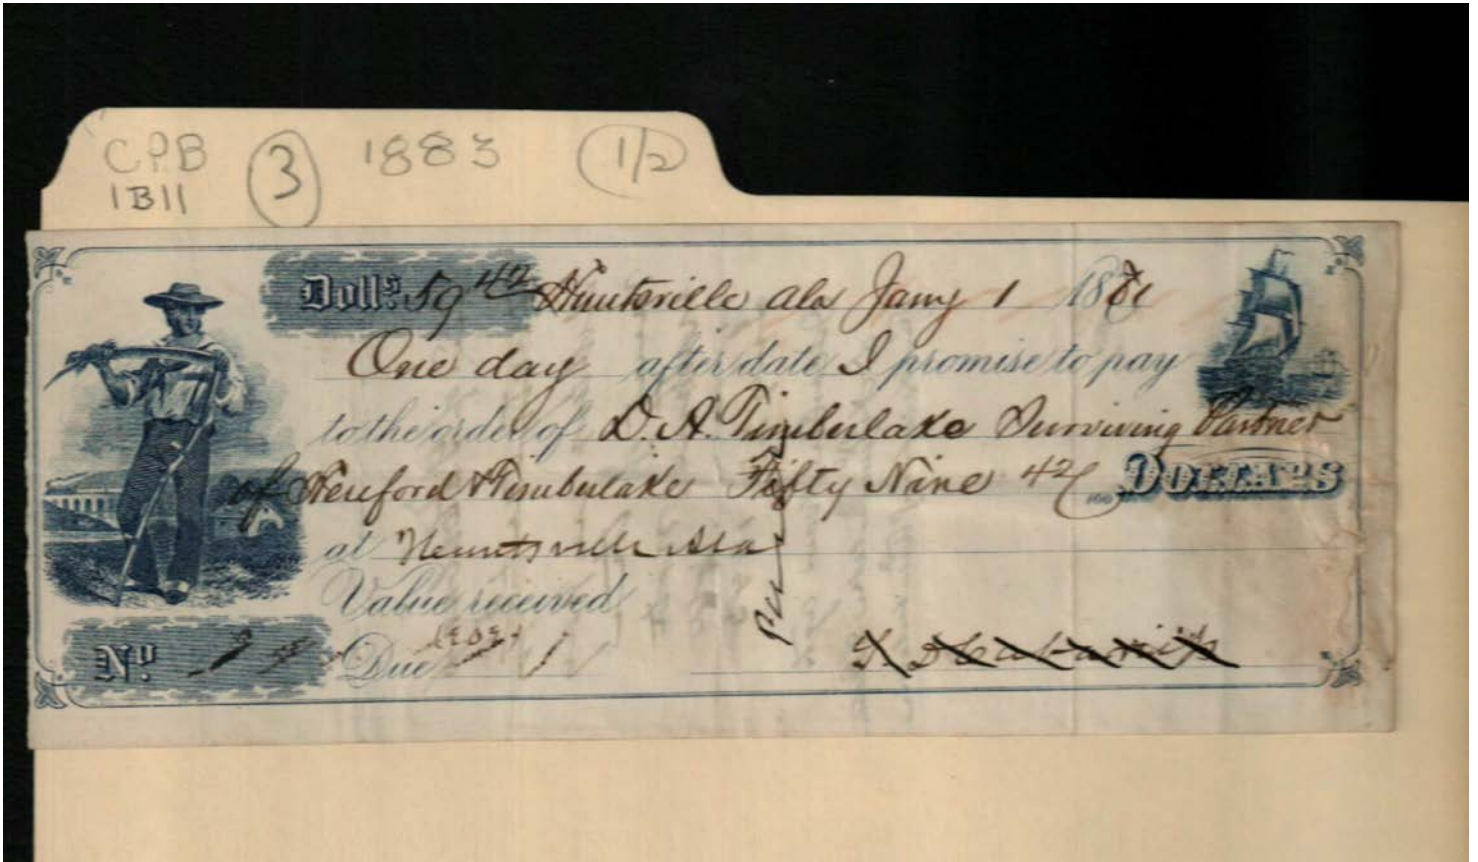 CPB 3 1883 1/2
1B11
Dolls. 59 42 Huntsville Ala Jany 1 18
One day after date I promise to pay
to the order of D. A. Timberlake Surviving Partner
of Hereford & Timberlake Fifty Nine 42/100 DOLLARS
at Huntsville Ala
Value received
No. Due